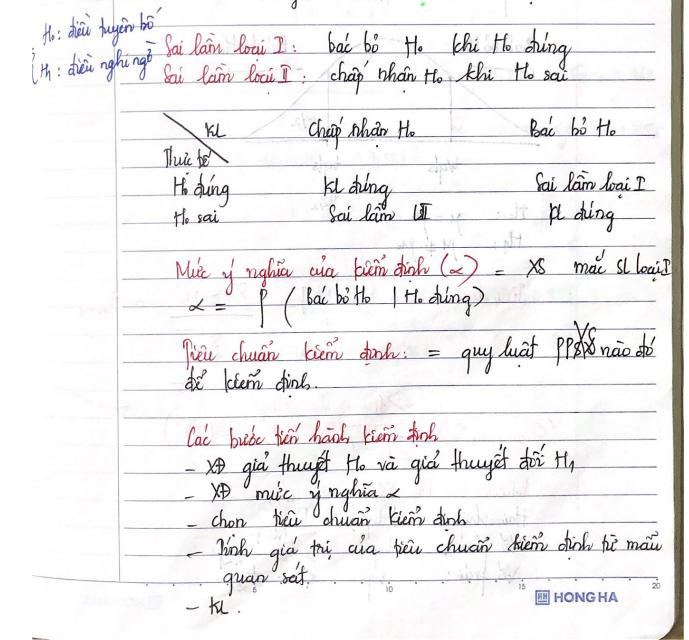 H₀: điều tuyên bố
H₁: điều nghi ngờ
Sai lầm loại I: bác bỏ H₀ khi H₀ đúng
Sai lầm loại II: chấp nhận H₀ khi H₀ sai
KL Chấp nhận H₀ Bác bỏ H₀
Thực tế
H₀ đúng KL đúng Sai lầm loại I
H₀ sai Sai lầm LII KL đúng
Mức ý nghĩa của kiểm định (α) = XS mắc SL loại I
α = P (Bác bỏ H₀ | H₀ đúng)
Tiêu chuẩn kiểm định: = quy luật PPXS nào đó
để kiểm định.
Các bước tiến hành kiểm định
- XĐ giả thuyết H₀ và giả thuyết đối H₁
- XĐ mức ý nghĩa α
- chọn tiêu chuẩn kiểm định
- Tính giá trị của tiêu chuẩn kiểm định từ mẫu
quan sát.
- KL.
5 10 15 20
HH HONG HA